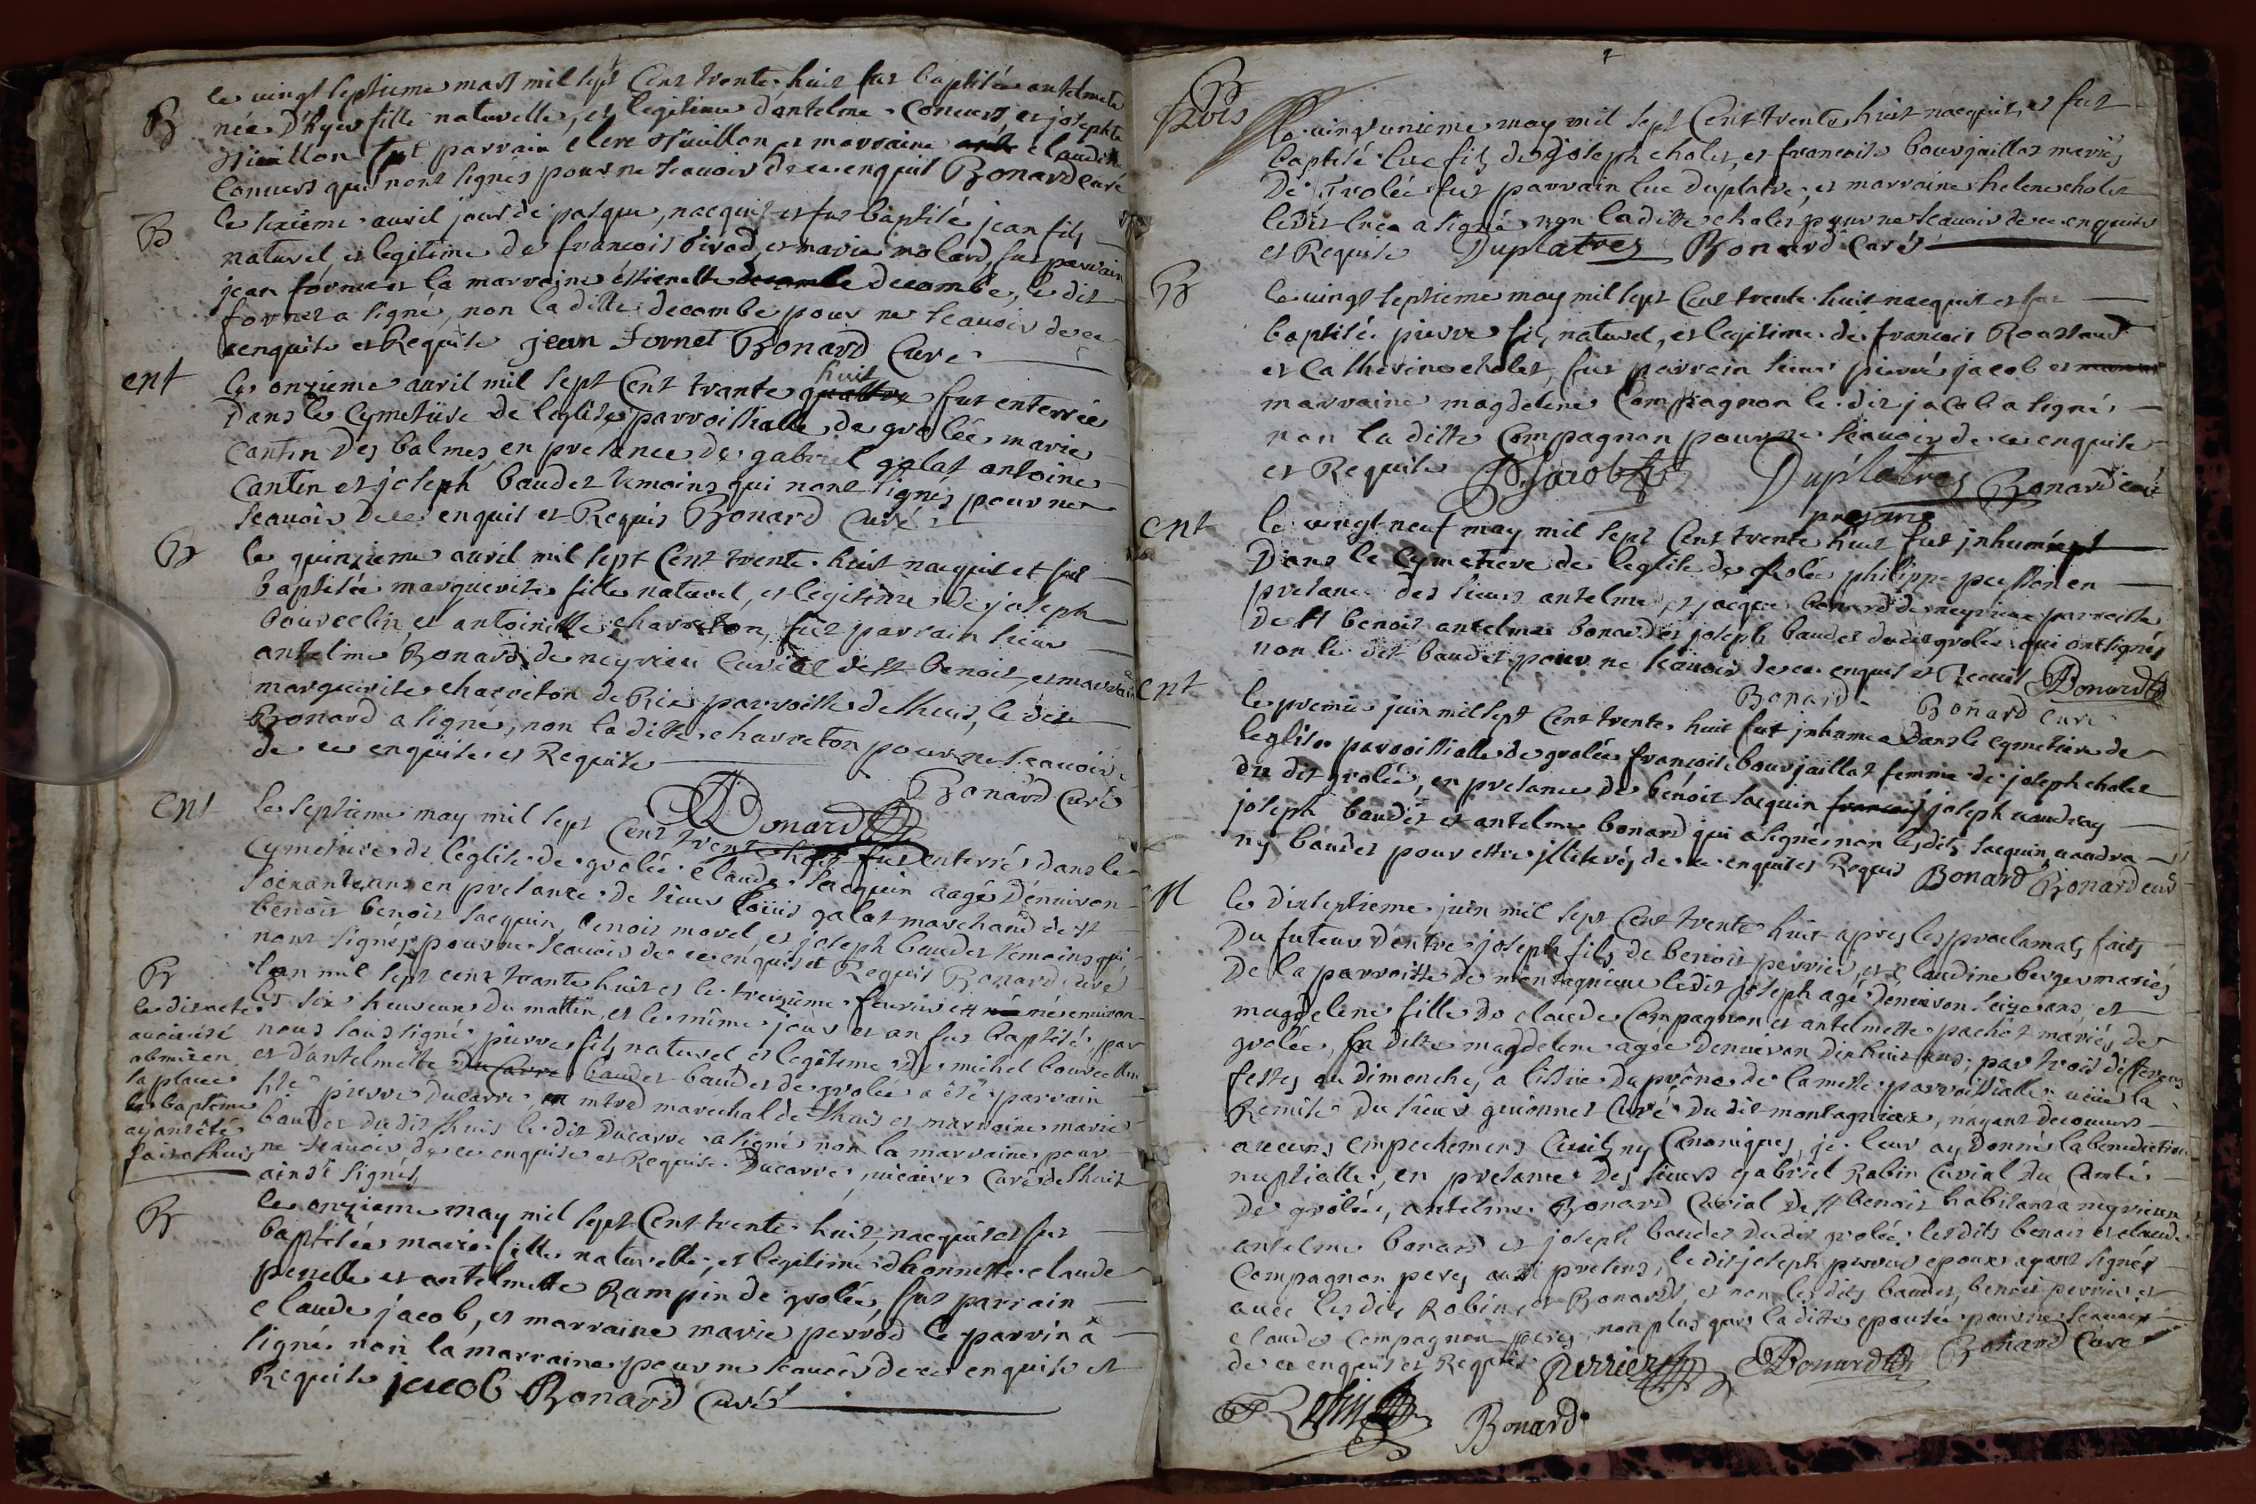 B
le vingt septieme mars mil sept Cent trente huit fut baptisée antelmete
née D'hyer fille naturelle, et legitime d'antelme Convers et josephte
fut parrain et marraine claudine
Convers qui n'ont signés pour ne scavoir de ce enquis Bonard curé
B
le sixieme avril jour de pasque, nacquit et fut baptisé jean fils
naturel et legitime de francois Pivod, et marie molard, fut parrain
jean fornet et la marraine éstienette decombe, le dit
fornet a signé, non la ditte decombe pour ne scavoir de ce
enquise et Requise jean fornet Bonard Curé
ent
le onzieme avril mil sept Cent trante huit fut enterrée
Dans le Cymetiere de leglise parroissialle de grolée marie
Cantin Des balmes, en presance de gabriel galat antoine
Cantin et joseph baudet temoins qui nont signés pour ne
scavoir de ce enquis et Requis Bonard Curé
B
le quinzieme avril mil sept Cent trente huit nacquit et fut
baptisée marguerite fille naturel, et legitime de joseph
bourcelin, et antoinette charreton, fut parrain sieur
antelme Bonard de neyrieu Curial de st benoit, et marraine
marguerite charreton de Rix parroisse de lhuis, le dit
Bonard a signé, non la ditte charreton pour ne scavoir
de ce enquise et Requise
Bonard Curé
Bonard
ent
le septieme may mil sept Cent trente huit fut enterré dans le
Cymetiere de léglise de grolée claude sacquin aagé dénviron
soixante ans en presance de sieur loüis galat marchand de st
benoit benoit sacquin, benoit morel, et joseph baudet temoins qui
nont signés pour ne scavoir de ce enquis et Requis Bonard Curé
B
le dit acte
avoit été
obmis en
la place
le baptême
ayant été
fait a lhuis
lan mil sept cent trante huit et le treizième fevrier est né environ
les six heures du mattin, et le même jour et an fut baptisé, par
nous soussigné, pierre fils naturel et legitime de michel bourcellin
et d'antelmette baudet de grolée a été parrain
pierre Ducarre mtre marechal de lhuis et marraine marie
baudet du dit lhuis le dit Ducarre a signé non la marraine pour
ne scavoir de ce enquise et Requise. Ducarre, curé de lhuis
ainsi signés
B
le onzieme may mil sept Cent trente huit, nacquit et fut
baptisée marie fille naturelle, et legitime dhonneste claude
perelle et antelmette Rampin de grolée, fut parrain
claude jacob, et marraine marie perrod le parrin a
signé non la marraine pour ne scavoir de ce enquise et
Requise jacob Bonard Curé
B
Le vingt unieme may mil sept Cent trente huit nacquit, et fut
baptisé luc fils de joseph cholet, et francoise bourjaillat mariés
De grolée fut parrain luc Duplatre, et marraine helene cholet
ledit luc a signé non laditte cholet pour ne scavoir de ce enquise
et Requise Duplatres Bonard Curé
B
le vingt septieme may mil sept Cent trente huit nacquit et fut
baptisé pierre fils naturel, et legitime de francois Roussaud
et Catherine cholet, fut parrain sieur pierre jacob et
marraine magdelene Compagnon le dit jacob a signé,
non la ditte Compagnon pour ne scavoir de ce enquise
et Requise P. Jacob Duplatres Bonard curé
present
ent
le vingt neuf may mil sept Cent trente huit fut jnhumé
Dans le Cymetiere de leglise de grolée philippe pession en
presance des sieurs antelme et jacque bonard de neyrieu parroisse
de st benoit antelme bonard et joseph baudet du dit grolée qui ont signés
non le dit baudet pour ne scavoir de ce enquis et Requis Bonard
Bonard Bonard curé
ent
le premie juin mil sept Cent trente huit fut jnhumée Dans le cymetiere de
leglise parroissialle de grolée francoise bourjaillat femme de joseph cholet
du dit grolée, en presance de benoit sacquin joseph vaudray
joseph baudet et antelme bonard qui a signé non lesdits sacquin vaudra
ny baudet pour ettre jllitterés de ce enquis et Requis Bonard Bonard curé
M
le dixseptieme juin mil sept Cent trente huit apres les proclamats faits
Du futeur d'entre joseph fils de benoit perrier, et claudine berger mariés
De la parroisse de montagnieu ledit joseph agé denviron seize ans, et
magdelene fille de claude Compagnon et antelmette pachot mariés de
grolée, la ditte magdelene agée denviron dix huit ans; par trois differents
festes ou dimenche, a lissue du prône de la messe parroissialle veue la
Remise du sieur guionnet Curé du dit montagnieu, nayant decouvers
aucuns empechemens Civil ny Canoniques, je leur ay donné la benediction
nuptialle, en presance des sieurs gabriel Robin Curial du Comté
de grolée, antelme Bonard Curial de st benoit habitant a neyrieu
antelme bonard et joseph baudet du dit grolée lesdits benoit et claude
Compagnon peres aussi presens, le dit joseph perrier epoux ayant signés
avec lesdits Robin, et Bonards, et non lesdits baudet, benoit perrier et
claude Compagnon peres non plus que la ditte epouse, pour ne scavoir
de ce enquis et Requis Perrier Bonard Bonard Curé
Robin Bonard